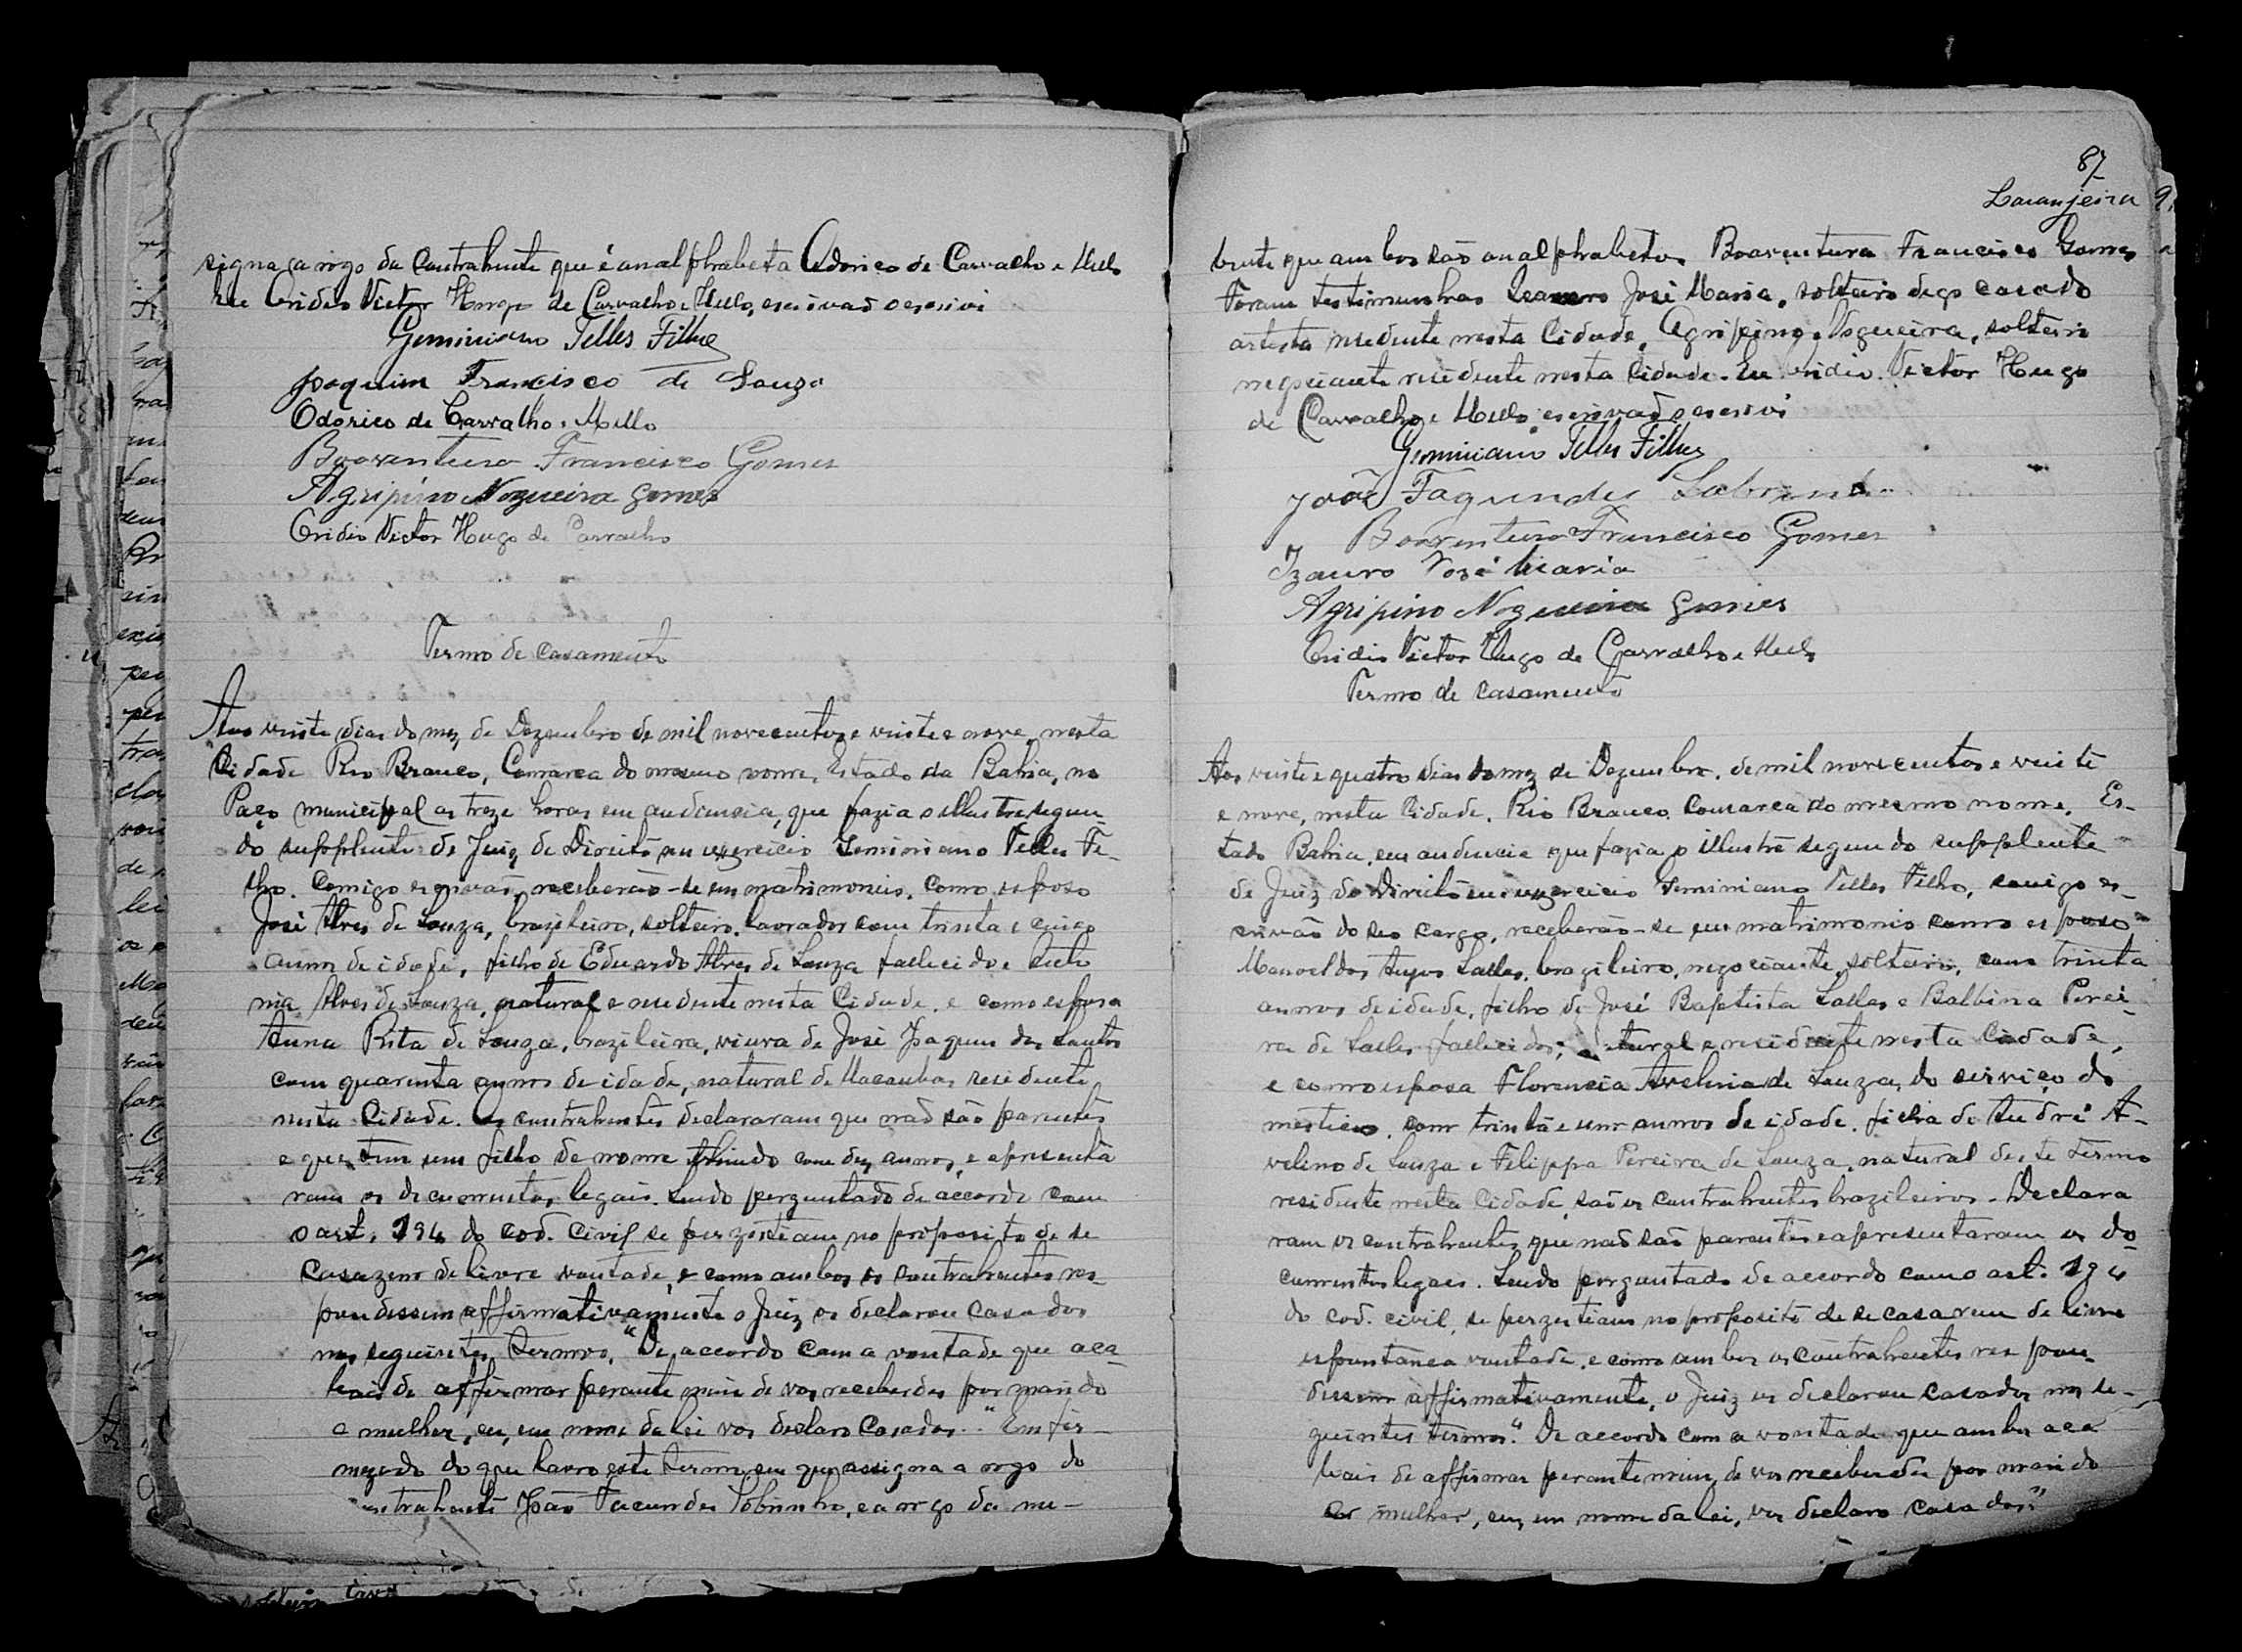 signa a rogo da contrahente que é analphabeta Odorico de Carvalho e Mello
Eu Enidio Victor Hugo de Carvalho e Mello, escrivão o escrivi
Geminiano Telles Filho
Joaquim Francisco de Souza
Odorico de Carvalho e Mello
Boaventura Francisco Gomes
Agripino Nogueira Gomes
Enidio Victor Hugo de Carvalho
Termo de casamento
Aos vinte dias do mez de Dezembro de mil novecentos e vinte e nove, nesta
Cidade Rio Branco, Comarca do mesmo nome, Estado da Bahia, no
Paço municipal as treze horas em audiencia, que fazia o illustre segun-
do supplente de Juiz de Direito em exercicio Geminiano Telles Fi-
lho. Comigo escrivão, receberão-se em matrimonio, como esposo
José Alves de Souza, brazileiro, solteiro, lavrador com trinta e cinco
annos de idade, filho de Eduardo Alves de Souza fallecido e
Alves de Souza, natural e residente nesta Cidade, e como esposa
Anna Rita de Souza, brazileira, viuva de José Joaquim dos Santos
com quarenta annos de idade, natural de Macaubas residente
nesta Cidade. Os contrahentes declararam que não são parentes
e que tem um filho de nome com dez annos, e apresenta
ram os documentos legais. Sendo perguntado de accordo com
o art. 194 do cod. Civil se perzistiam no proposito de se
casazem de livre vontade, e como ambos os contrahentes res-
pondessem affirmativamente o Juiz os declarou casados
nos seguintes termos, "De accordo com a vontade que aca-
bais de affirmar perante mim de vos receberdes por marido
e mulher, eu, em nome da lei vos declaro casados." Em fir-
mezado do que lavro este termo em que assigna a rogo do
contrahente João Facundes Sobrinho, e a rogo da nu-
87
Laranjeira
bente que ambos são analphabetos Boaventura Francisco Gomes
Foram testimunhas José Maria, solteiro digo casado
artista residente nesta Cidade, Agripino Nogueira, solteiro
negociante residente nesta Cidade. Eu Enidio Victor Hugo
de Carvalho e Mello, escrivão o escrivi
Geminiano Telles Filho
João Fagundes Sobrinho
Boaventura Francisco Gomes
Izauro José Maria
Agripino Nogueira Gomes
Enidio Victor Hugo de Carvalho e Mello
Termo de casamento
Aos vinte e quatro dias do mez de Dezembro, de mil novecentos e vinte
e nove, nesta Cidade, Rio Branco, Comarca do mesmo nome, Es-
tado Bahia, em audiencia que fazia o illustre segundo supplente
de Juiz de Direito em exercicio Geminiano Telles Filho, comigo es-
crivão do seo cargo, receberão-se em matrimonio como esposo
Manoel dos Anjos Salles, brazileiro, negociante, solteiro, com trinta
annos de idade, filho de José Baptista Salles e Balbina Perei-
ra de Salles fallecidos; natural e residente nesta Cidade,
e como esposa Florencia Avelina de Souza, do serviço do
mestico, com trinta e um annos de idade, filha de André A-
velino de Souza e Filippa Pereira de Souza, natural deste termo
residente nesta Cidade, são os contrahentes brazileiros. Declara
ram os contrahentes que não são parentes e apresentaram os do-
cumentos legaes. Sendo perguntado de accordo com o art. 194
do cod. civil, se perzistiam no proposito de se casarem de livre
espontanea vontade, e como ambos os contrahentes respon-
dessem affirmativamente, o Juiz os declarou casados nos se-
guintes termos." De accordo com a vontade que ambos aca
bais de affirmar perante mim, de vos receberdes por marido
mulher, eu, em nome da lei, vos declaro casados."